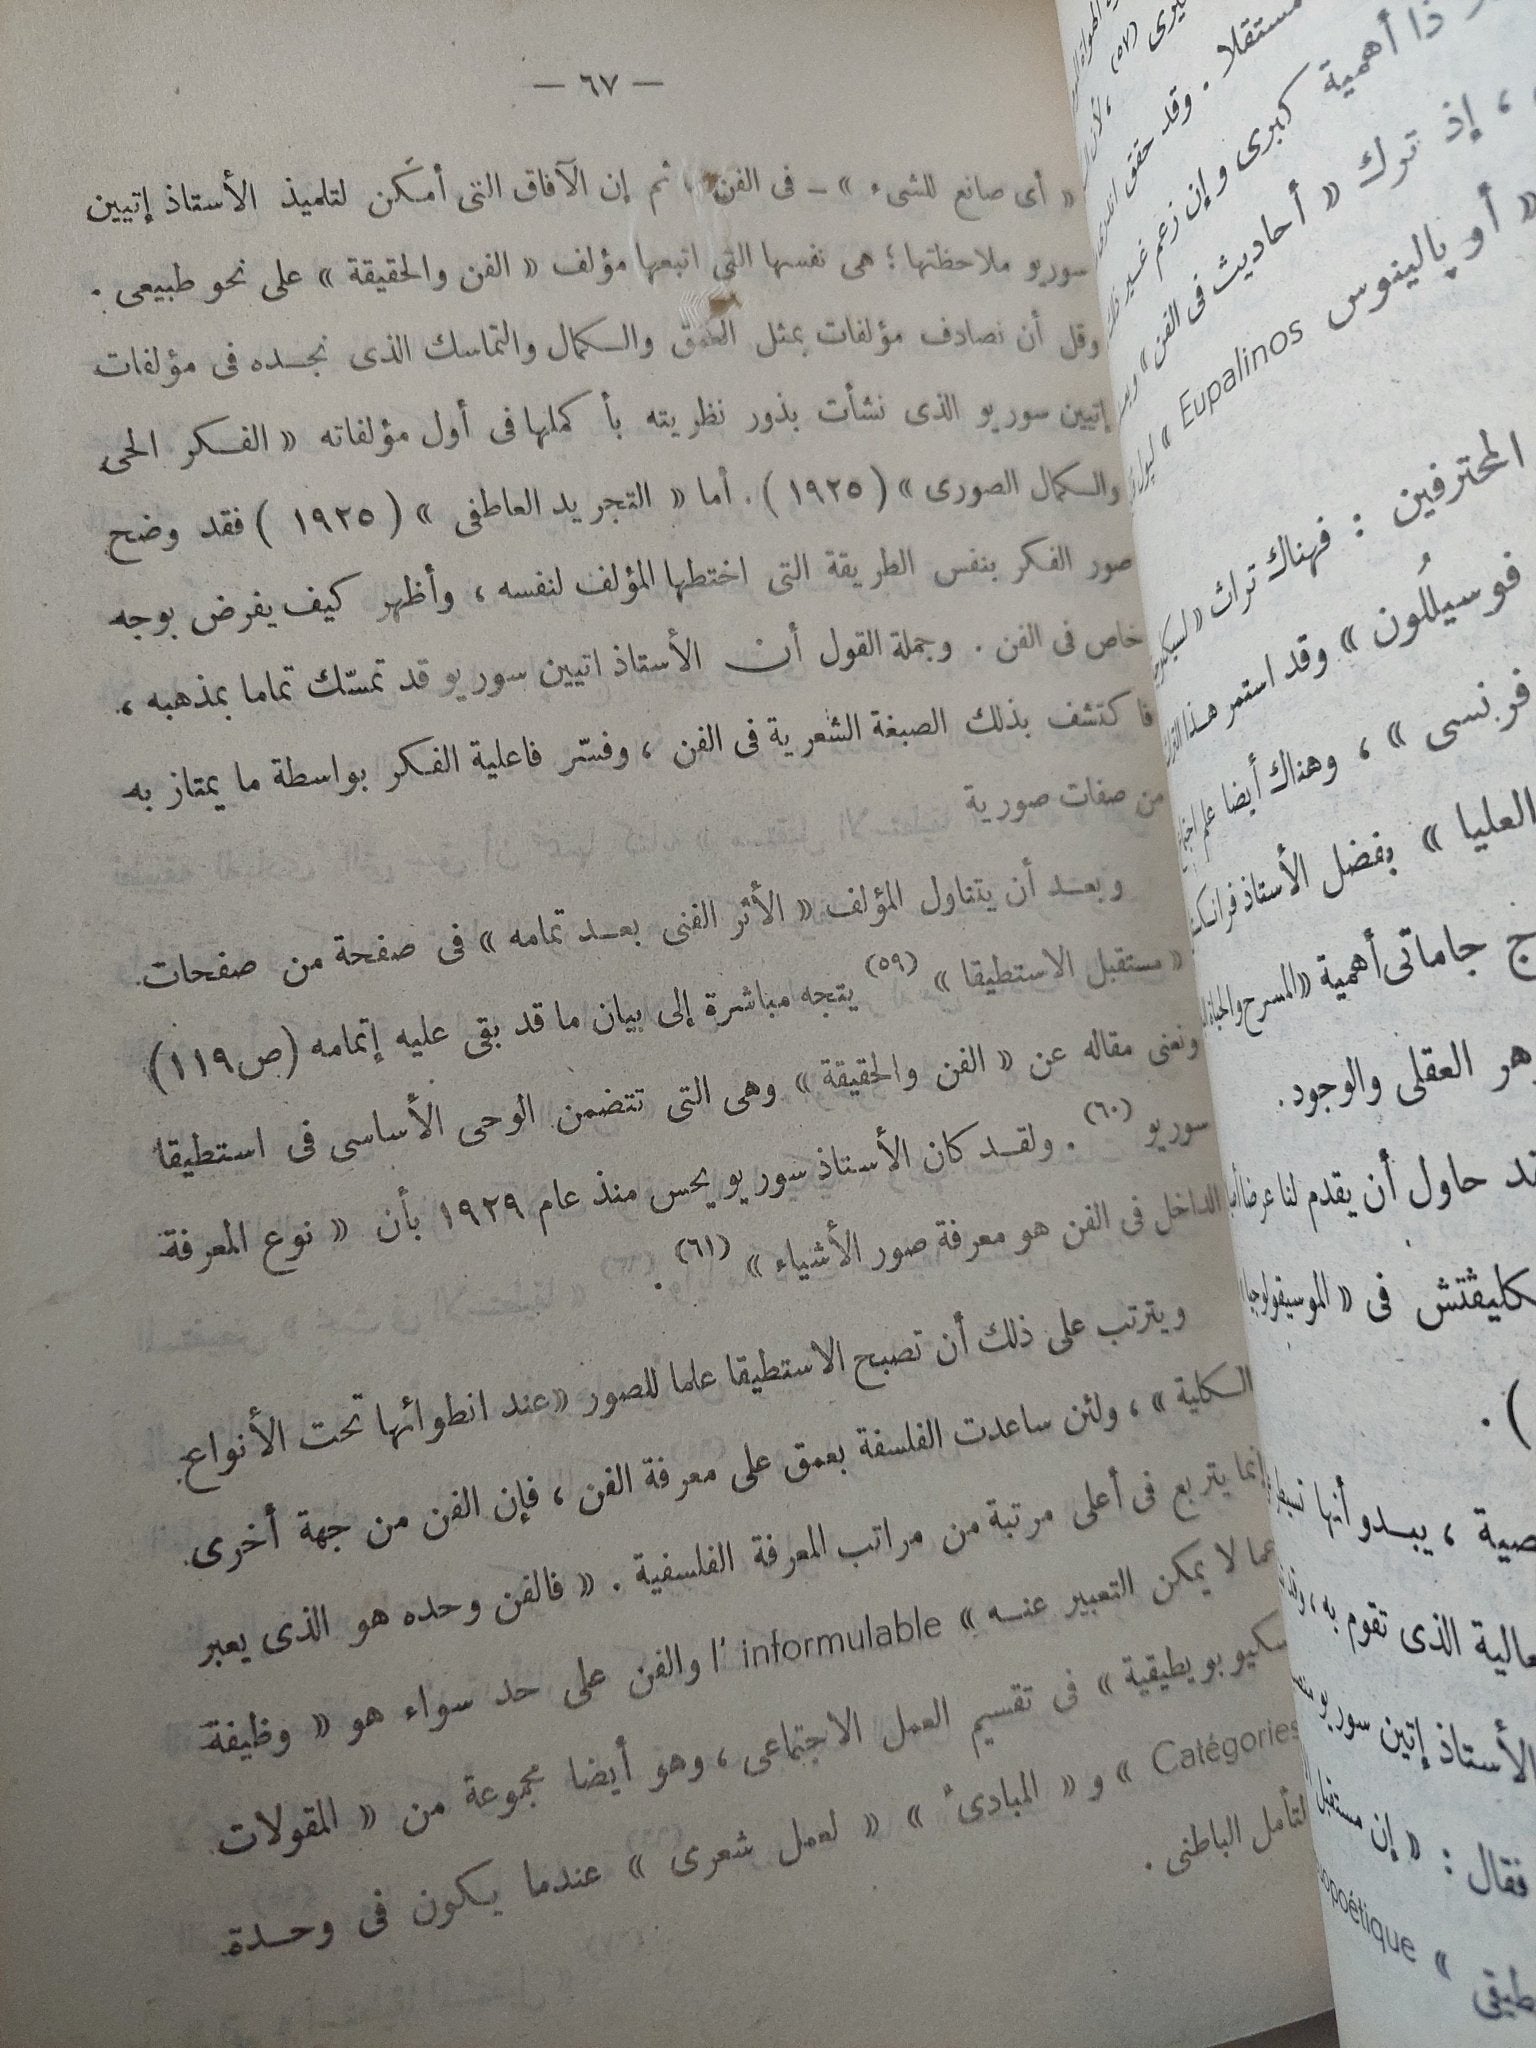 — ٦٧ —
« أى صانع للشىء » — فى الفن ، ثم إن الآفاق التى أمكن لتلميذ الأستاذ إتيين
سوريو ملاحظتها ؛ هى نفسها التى اتبعها مؤلف « الفن والحقيقة » على نحو طبيعى .
وقل أن نصادف مؤلفات بمثل العمق والكمال والتماسك الذى نجده فى مؤلفات
إتيين سوريو الذى نشأت بذور نظريته بأكملها فى أول مؤلفاته « الفكر الحى
والكمال الصورى » ( ١٩٢٥ ) . أما « التجريد العاطفى » ( ١٩٢٥ ) فقد وضح
صور الفكر بنفس الطريقة التى اختطها المؤلف لنفسه ، وأظهر كيف يفرض بوجه
خاص فى الفن . وجملة القول أن الأستاذ اتيين سوريو قد تمسّك تماما بمذهبه ،
فاكتشف بذلك الصبغة الشعرية فى الفن ، وفسّر فاعلية الفكر بواسطة ما يمتاز به
من صفات صورية
وبعد أن يتناول المؤلف « الأثر الفنى بعد تمامه » فى صفحة من صفحات
« مستقبل الاستطيقا » (٥٩) يتجه مباشرة إلى بيان ما قد بقى عليه إتمامه (ص ١١٩)
ونعنى مقاله عن « الفن والحقيقة » وهى التى تتضمن الوحى الأساسى فى استطيقا
سوريو (٦٠) . ولقد كان الأستاذ سوريو يحس منذ عام ١٩٢٩ بأن « نوع المعرفة
الداخل فى الفن هو معرفة صور الأشياء » (٦١) .
ويترتب على ذلك أن تصبح الاستطيقا علما للصور « عند انطوائها تحت الأنواع
الكلية » ، ولئن ساعدت الفلسفة بعمق على معرفة الفن ، فإن الفن من جهة أخرى
إنما يتربع فى أعلى مرتبة من مراتب المعرفة الفلسفية . « فالفن وحده هو الذى يعبر
عما لا يمكن التعبير عنه » l'informulable والفن على حد سواء هو « وظيفة
سكيوبويطيقية » فى تقسيم العمل الاجتماعى ، وهو أيضا مجموعة من « المقولات
Catégories » و « المبادىء » « لعمل شعرى » عندما يكون فى وحدة
لتأمل الباطنى .
(٥٧)
مستقلا . وقد حقق
ذا أهمية كبرى وإن زعم غير
، إذ ترك « أحاديث فى الفن »
« أو پالينوس Eupalinos »
المحترفين : فهناك تراث
فوسيلُلون » وقد استمر هذا
فرنسى » ، وهناك أيضا علم
العليا » بفضل الأستاذ
جاماتى أهمية « المسرح والحياة
العقلى والوجود .
حاول أن يقدم لنا عرضا
فى « الموسيقولوجيا
) .
، يبدو أنها
الذى تقوم به ،
الأستاذ إتيين سوريو
فقال : « إن مستقبل